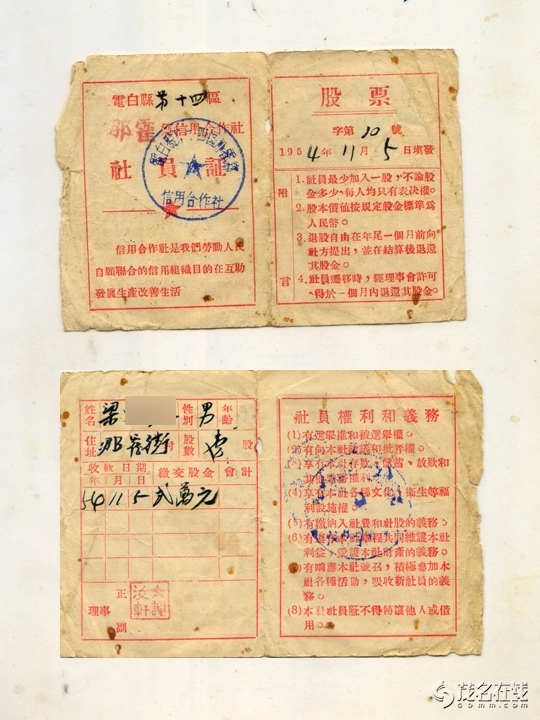 電白縣第十四區
那霍鄉信用合作社
社員証
信用合作社
信用合作社是我們勞動人民
自願聯合的信用組織目的在互助
發展生產改善生活
股票
字第10號
1954年11月5日填發
附
言
1.社員最少加入一股,不論股
金多少、每人均只有表决權。
2.股本價值按規定股金標準爲
人民幣。
3.退股自由在年足一個月前向
社方提出,並在結算後退還
其股金。
4.社員遷移時,經理事會許可
得於一個月內退還其股金。
姓名 梁
性別 男
年齡
住址 那霍街
股數 壹 股
收款日期 繳交股金 會計
年 月 日
54 11 5 弍萬元
理事
正
副
社員權利和義務
(1)有選舉權和被選舉權。
(2)有向本社建議和批評權。
(3)享有本社存款、儲蓄、放款和
(4)享有本社各種文化、衛生等福
利設施權。
(5)有繳納入社費和社股的義務。
利益、愛護本社財產的義務。
有响應本社號召,積極參加本
社各種活動,吸收新社員的義
務。
(8)本社社員証不得轉讓他人或借
用。
茂名在线
gdmm.com